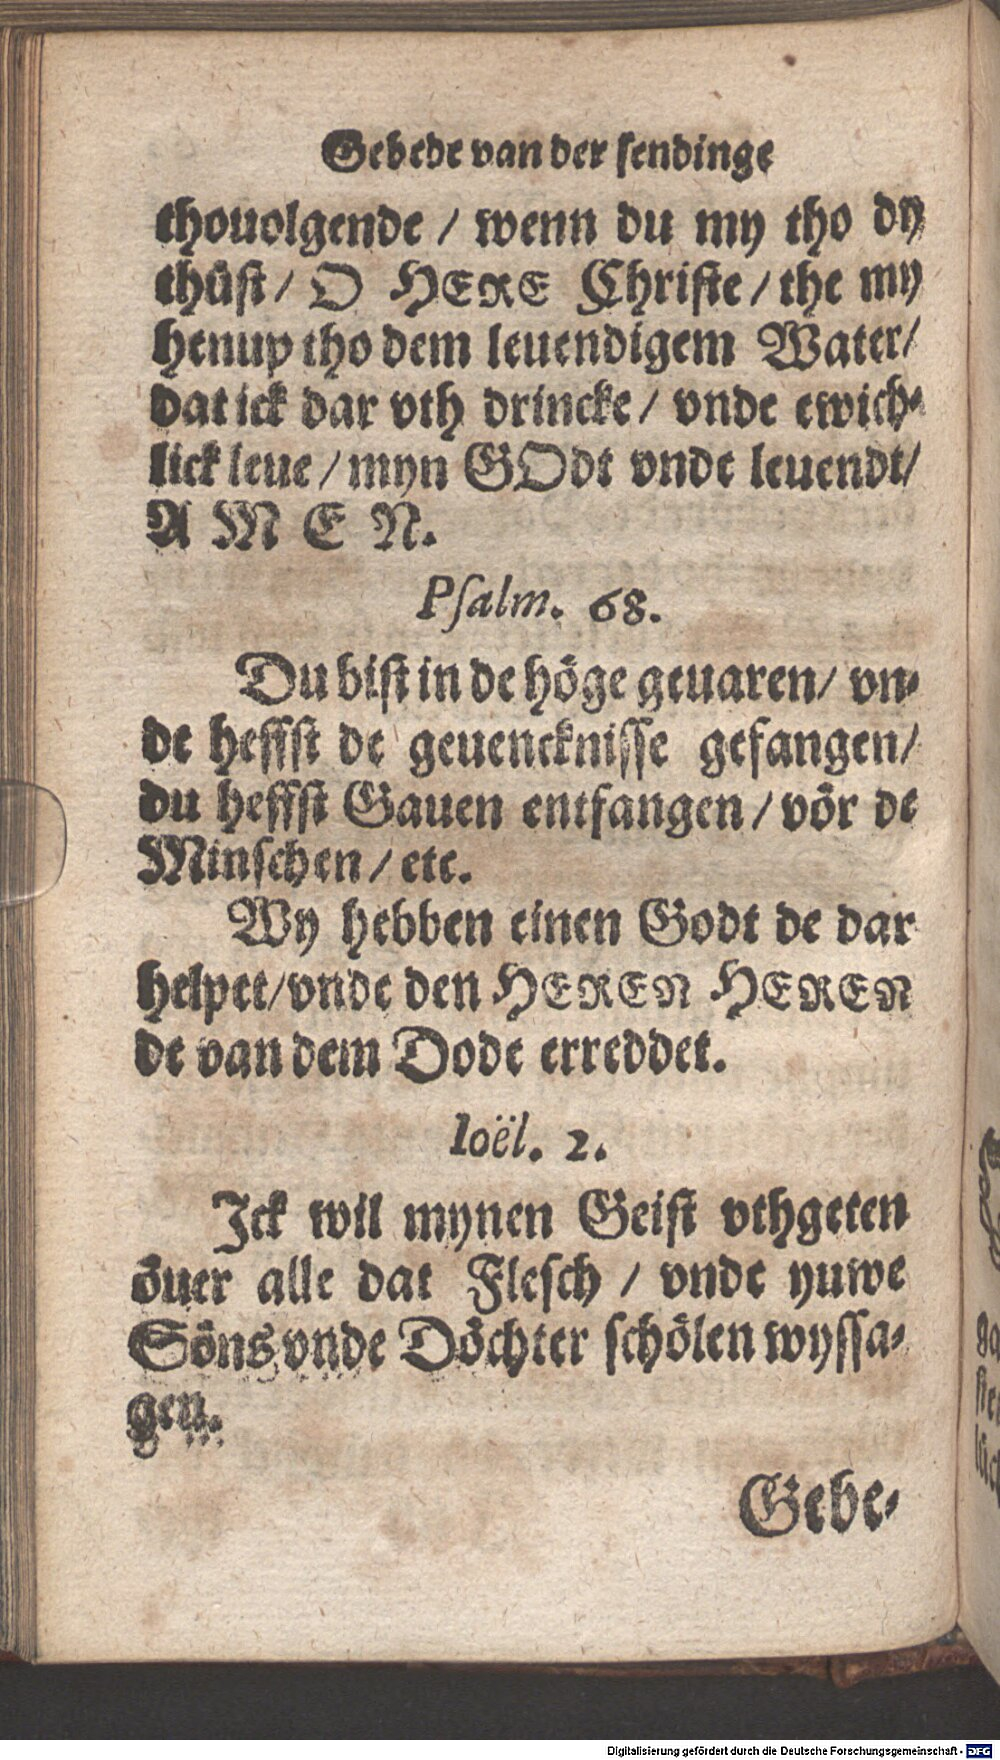 Gebede van der sendinge
thouolgende / wenn du my tho dy
thüst / O HERE Christe / the my
henup tho dem leuendigem Water /
dat ick dar vth drincke / vnde ewich-
lick leue / myn GOdt vnde leuendt /
A M E N.
Psalm. 68.
Du bist in de höge geuaren / vn-
de heffst de geuencknisse gefangen /
du heffst Gauen entfangen / vör de
Minschen / etc.
Wy hebben einen Godt de dar
helpet / vnde den HEREN HEREN
de van dem Dode erreddet.
Ioël. 2.
Ick wil mynen Geist vthgeten
öuer alle dat Flesch / vnde yuwe
Söns vnde Döchter schölen wyssa-
gen.
Gebe-
Digitalisierung gefördert durch die Deutsche Forschungsgemeinschaft - DFG